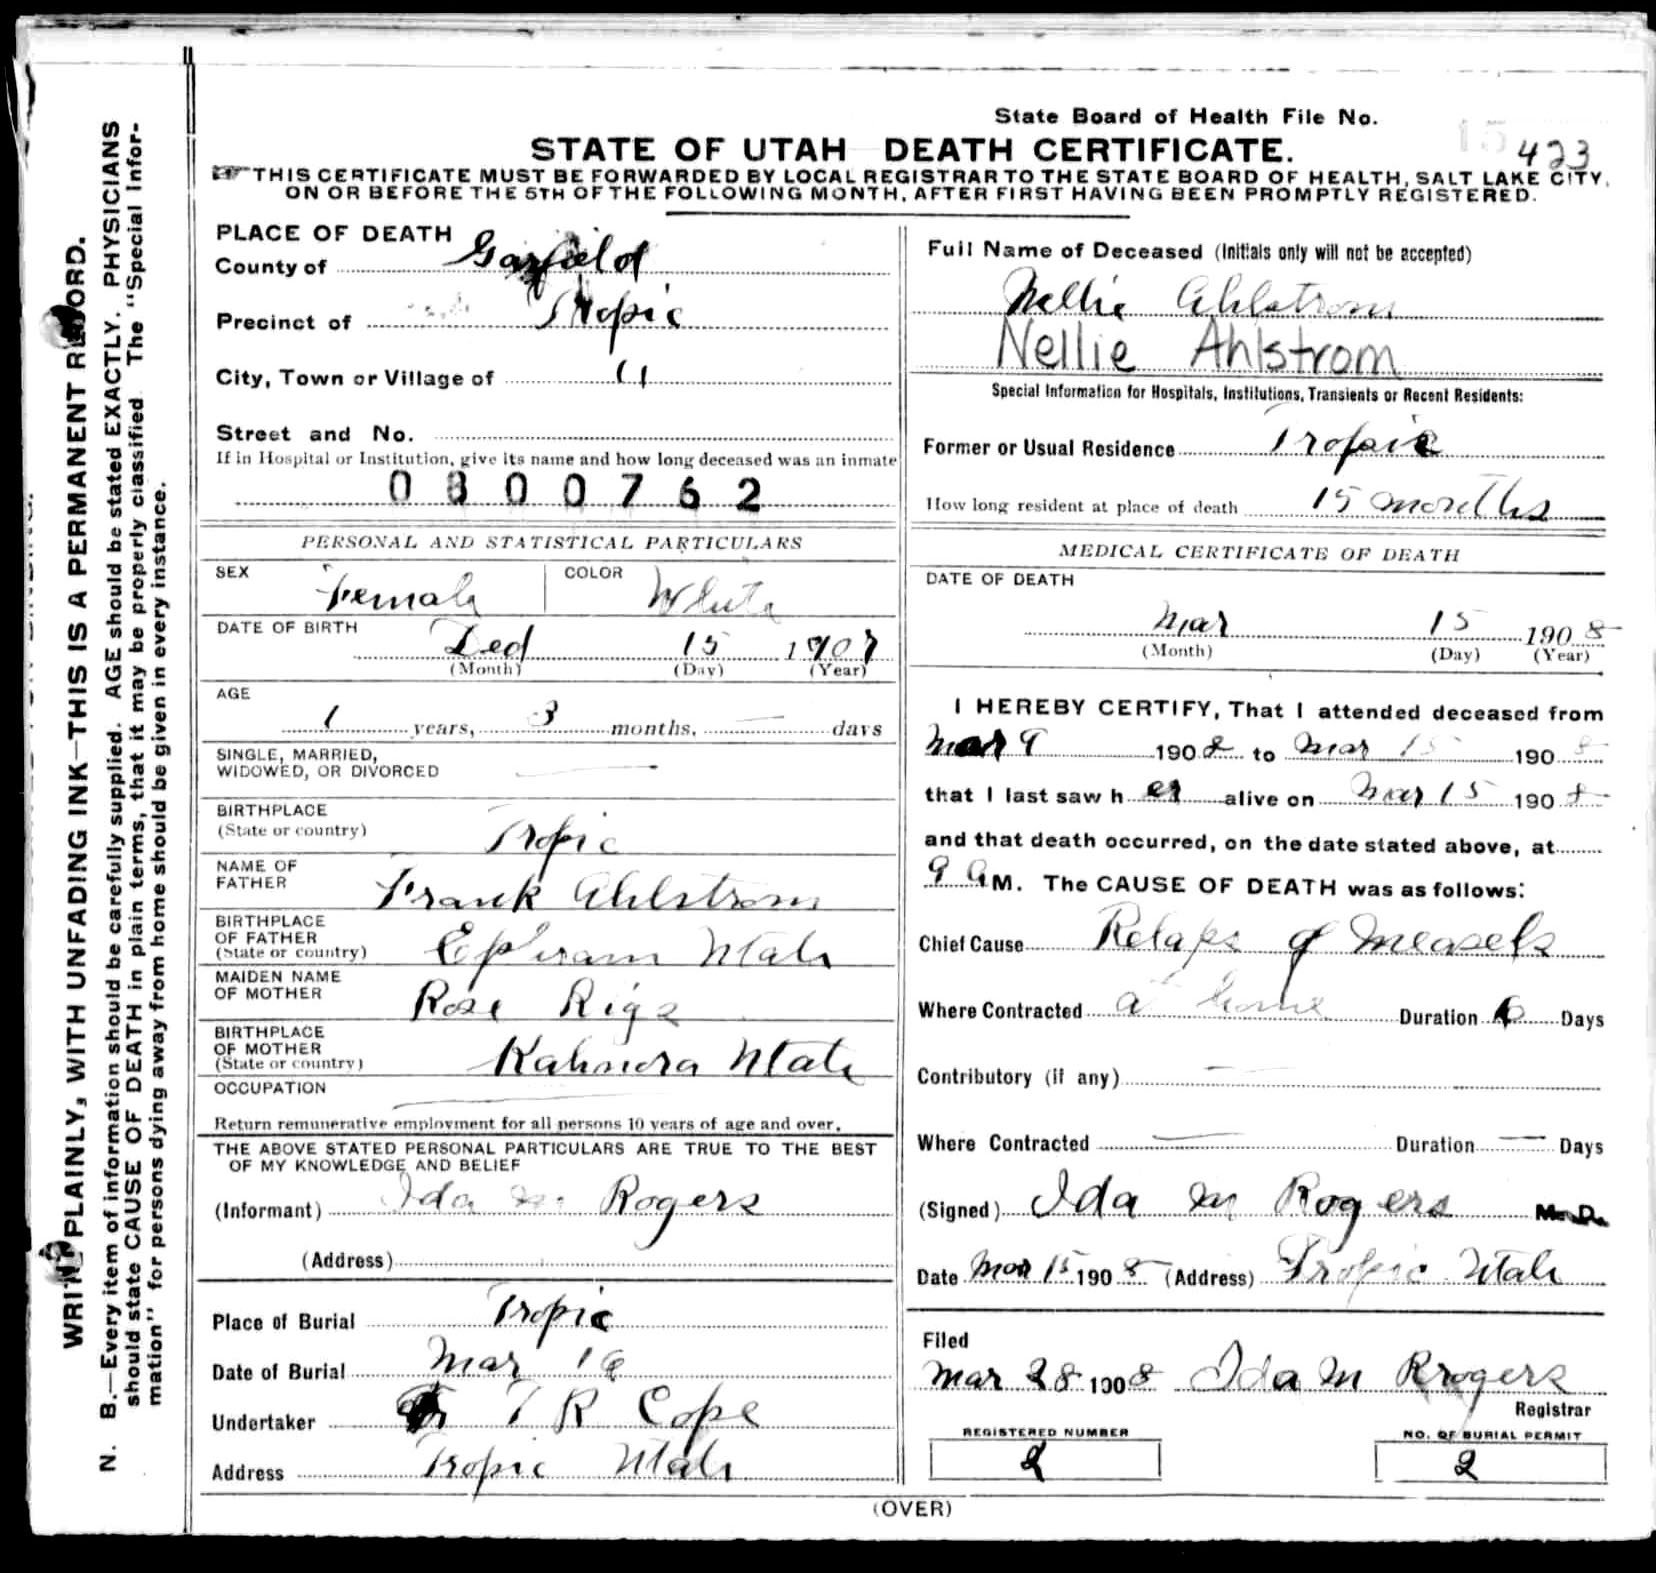 State Board of Health File No.
15 423
STATE OF UTAH DEATH CERTIFICATE.
THIS CERTIFICATE MUST BE FORWARDED BY LOCAL REGISTRAR TO THE STATE BOARD OF HEALTH, SALT LAKE CITY,
ON OR BEFORE THE 5TH OF THE FOLLOWING MONTH, AFTER FIRST HAVING BEEN PROMPTLY REGISTERED.
WRITE PLAINLY, WITH UNFADING INK—THIS IS A PERMANENT RECORD.
N. B.—Every item of information should be carefully supplied. AGE should be stated EXACTLY. PHYSICIANS
should state CAUSE OF DEATH in plain terms, that it may be properly classified. The "Special Infor-
mation" for persons dying away from home should be given in every instance.
PLACE OF DEATH
County of Garfield
Precinct of Tropic
City, Town or Village of "
Street and No.
If in Hospital or Institution, give its name and how long deceased was an inmate
0 3 0 0 7 6 2
PERSONAL AND STATISTICAL PARTICULARS
SEX Female COLOR White
DATE OF BIRTH
Ded 15 1907
(Month) (Day) (Year)
AGE
1 years, 3 months, — days
SINGLE, MARRIED,
WIDOWED, OR DIVORCED —
BIRTHPLACE
(State or country) Tropic
NAME OF
FATHER Frank Ahlstrom
BIRTHPLACE
OF FATHER
(State or country) Ephram Utah
MAIDEN NAME
OF MOTHER Rose Rigs
BIRTHPLACE
OF MOTHER
(State or country) Utah
OCCUPATION —
Return remunerative employment for all persons 10 years of age and over.
THE ABOVE STATED PERSONAL PARTICULARS ARE TRUE TO THE BEST
OF MY KNOWLEDGE AND BELIEF
(Informant) Ida M. Rogers
(Address)
Place of Burial Tropic
Date of Burial Mar 16
Undertaker T R Cope
Address Tropic Utah
Full Name of Deceased (Initials only will not be accepted)
Nellie Ahlstrom
Nellie Ahlstrom
Special Information for Hospitals, Institutions, Transients or Recent Residents:
Former or Usual Residence Tropic
How long resident at place of death 15 months
MEDICAL CERTIFICATE OF DEATH
DATE OF DEATH
Mar 15 1908
(Month) (Day) (Year)
I HEREBY CERTIFY, That I attended deceased from
Mar 9 1908 to Mar 15 1908
that I last saw her alive on Mar 15 1908
and that death occurred, on the date stated above, at
9 A M. The CAUSE OF DEATH was as follows:
Chief Cause Relaps of Measels
Where Contracted at home Duration 6 Days
Contributory (if any) —
Where Contracted — Duration — Days
(Signed) Ida M Rogers M. D.
Date Mar 15 1908 (Address) Tropic Utah
Filed
Mar 28 1908 Ida M Rogers
Registrar
REGISTERED NUMBER
2
NO. OF BURIAL PERMIT
2
(OVER)